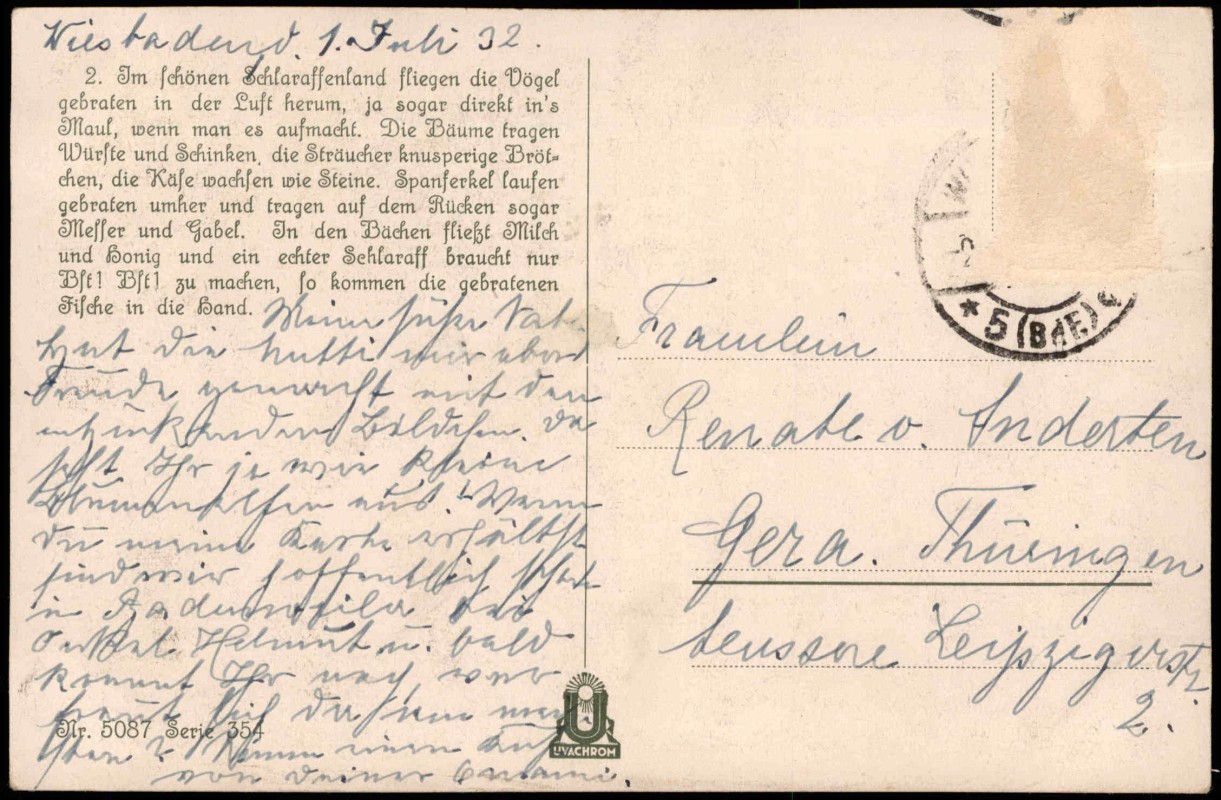 Wiesbaden, d. 1. Juli 32.
2. Im schönen Schlaraffenland fliegen die Vögel
gebraten in der Luft herum, ja sogar direkt in's
Maul, wenn man es aufmacht. Die Bäume tragen
Würste und Schinken, die Sträucher knusperige Bröt=
chen, die Käse wachsen wie Steine. Spanferkel laufen
gebraten umher und tragen auf dem Rücken sogar
Messer und Gabel. In den Bächen fließt Milch
und Honig und ein echter Schlaraff braucht nur
Bst! Bst! zu machen, so kommen die gebratenen
Fische in die Hand.
Meine süße
hat die Mutti mir aber
Freude gemacht mit den
entzückenden Bildchen. Da
seht Ihr ja wie kleine
Blumenelfen aus! Wenn
du meine Karte erhältst
sind wir hoffentlich schon
in Badenweiler bei
Onkel Helmut u. bald
kommt Ihr nach, wer
freut sich da am mei
sten? Nimm einen Kuß
von deiner Omami.
Nr. 5087 Serie 354
UVACHROM
* 5 (BdE)
Fraeulein
Renate v. Anderten
Gera. Thüringen
teussere Leipzigerstr.
2.